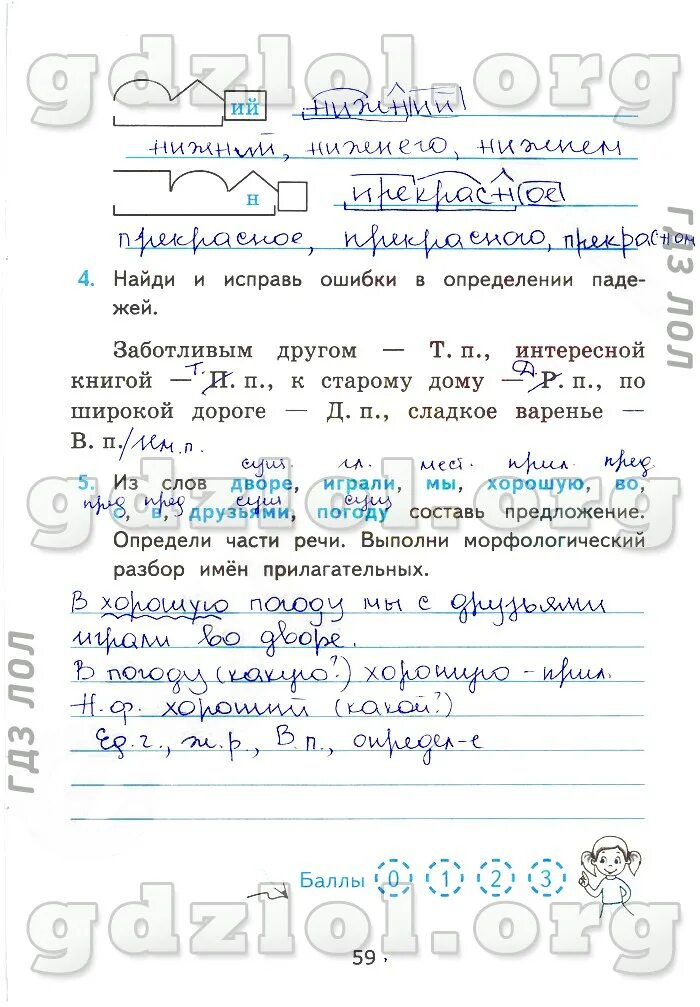 gdzlol.org
ий нижний
нижний, нижнего, нижнем
н прекрасное
прекрасное, прекрасного, прекрасном
4. Найди и исправь ошибки в определении паде-
жей.
Заботливым другом — Т. п., интересной
книгой — Т. П. п., к старому дому — Д. Р. п., по
широкой дороге — Д. п., сладкое варенье —
В. п./Им. п.
сущ. гл. мест. прил. пред
5. Из слов дворе, играли, мы, хорошую, во,
пред пред сущ сущ
с, в, друзьями, погоду составь предложение.
Определи части речи. Выполни морфологический
разбор имён прилагательных.
В хорошую погоду мы с друзьями
играли во дворе.
В погоду (какую?) хорошую - прил.
Н.ф. хороший (какой?)
Ед.г., ж.р., В.п., определ-е
Баллы 0 1 2 3
59
гдз лол
гдз лол
gdzlol.org
gdzlol.org